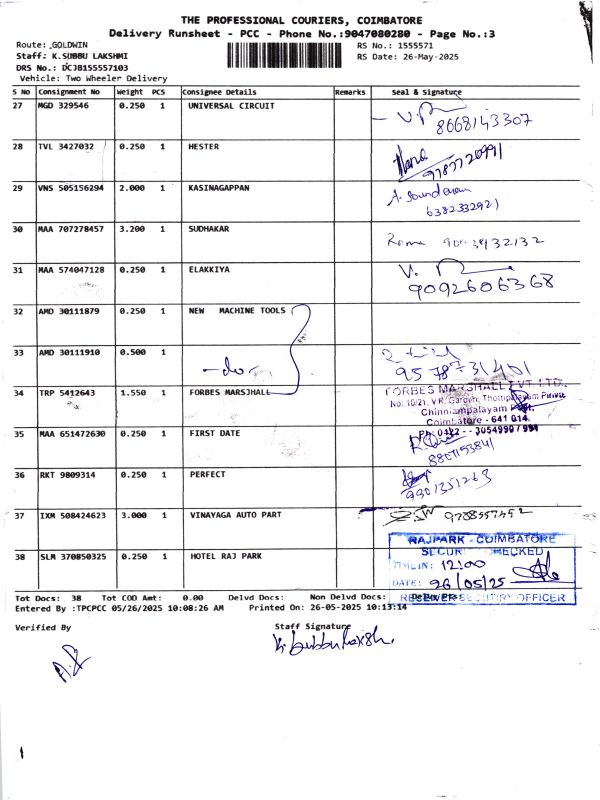 THE PROFESSIONAL COURIERS, COIMBATORE
Delivery Runsheet - PCC - Phone No.:9047080280 - Page No.:3
Route: GOLDWIN
RS No.: 1555571
Staff: K.SUBBU LAKSHMI
RS Date: 26-May-2025
DRS No.: DCJB155557103
Vehicle: Two Wheeler Delivery
S No Consignment No Weight PCS Consignee Details Remarks Seal & Signature
27 MGD 329546 0.250 1 UNIVERSAL CIRCUIT
8668143307
28 TVL 3427032 0.250 1 HESTER
29 VNS 505156294 2.000 1 KASINAGAPPAN
A. Soundaram
6382332921
30 MAA 707278457 3.200 1 SUDHAKAR
31 MAA 574047128 0.250 1 ELAKKIYA
9092606368
32 AMD 30111879 0.250 1 NEW MACHINE TOOLS
33 AMD 30111910 0.500 1 -do-
34 TRP 5412643 1.550 1 FORBES MARSJHALL
FORBES MARSHALL PVT. LTD.
Chinniampalayam Post.
Coimbatore - 641 014.
35 MAA 651472630 0.250 1 FIRST DATE
36 RKT 9809314 0.250 1 PERFECT
9901351263
37 IXM 508424623 3.000 1 VINAYAGA AUTO PART
38 SLM 370850325 0.250 1 HOTEL RAJ PARK
RAJPARK - COIMBATORE
SECURITY CHECKED
TIME IN: 12:00
DATE: 26/05/25
Tot Docs: 38 Tot COD Amt: 0.00 Delvd Docs: Non Delvd Docs:
Entered By :TPCPCC 05/26/2025 10:08:26 AM Printed On: 26-05-2025 10:13:14
Verified By
Staff Signature
K. Subbulakshmi